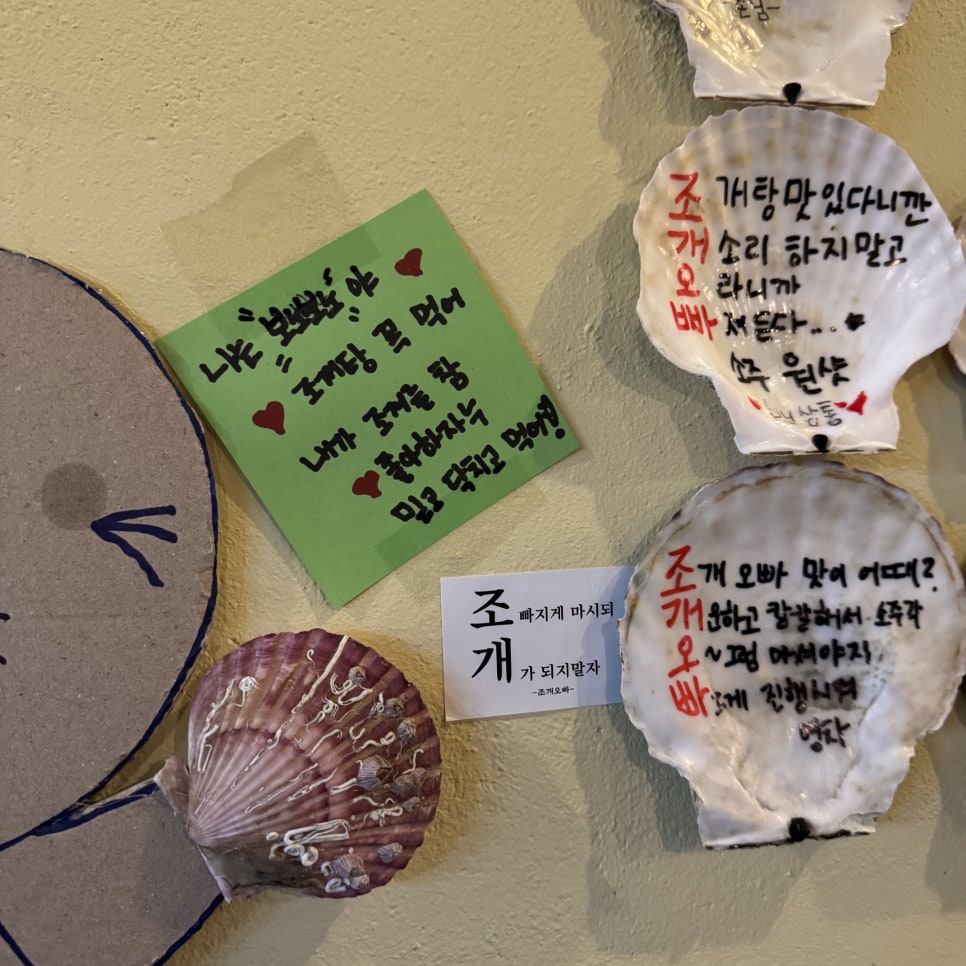 나는
야
조개탕 푹 먹어
내가 조개를 참
좋아하자누
믿고 닥치고 먹어!
조 빠지게 마시되
개 가 되지말자
-조개오빠-
조 개탕맛있다니깐
개 소리 하지말고
오 라니까
빠 져든다...
소주 원샷
조 개 오빠 맛이 어때?
개 운하고 깔끔해서 소주각
오 ~그럼 마셔야지
빠 르게 진행시켜
영차